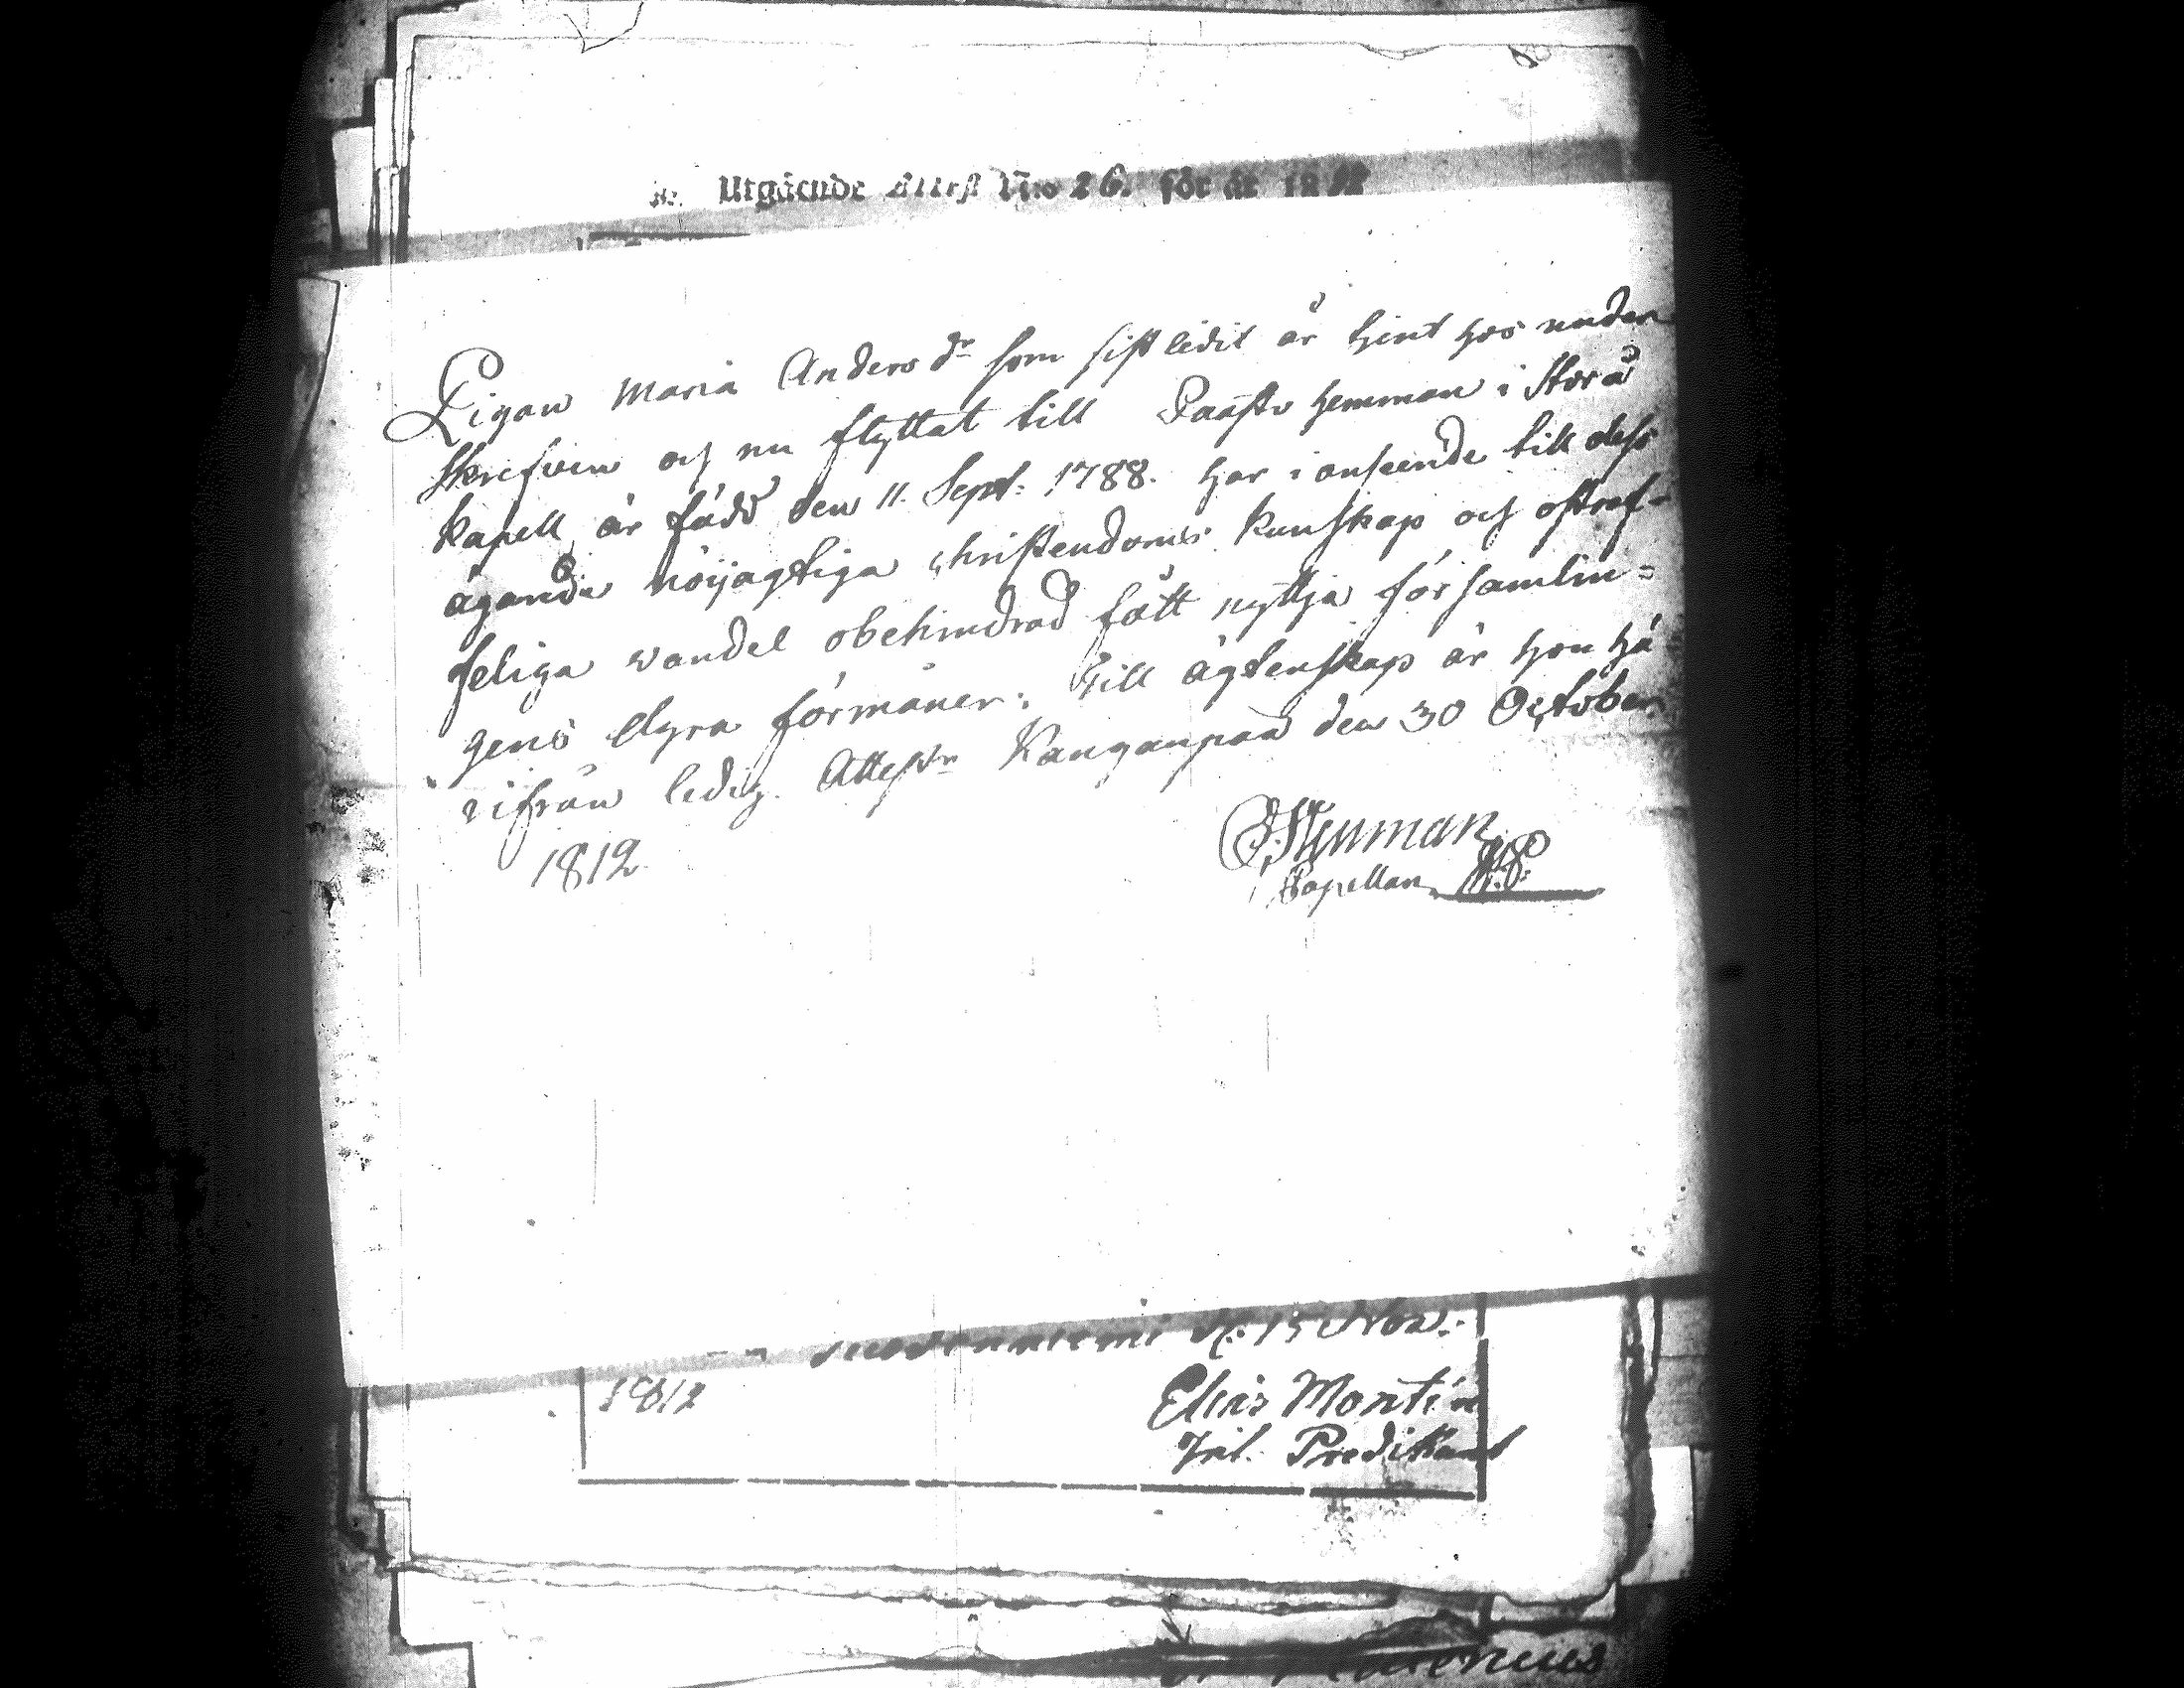 Utgående Attest N:o 26. för år 1812
Pigan Maria Anders dr som sistledit år tjent hos under
skrifven och nu flyttat till Paasto hemman i Storå
Kapell, är född den 11. Sept: 1788. har i anseende till dess
ägande nöijagtiga christendoms kunskap och ostraf-
feliga vandel obehindrad fått nyttja församlin=
gens dyra förmåner; till ägtenskap är hon hä
rifrån ledig. Attestr Kanganpää den 30 October
1812.
Stenman
Capellan
d. 15 Nov.
1812
Elias Montin
Predikant